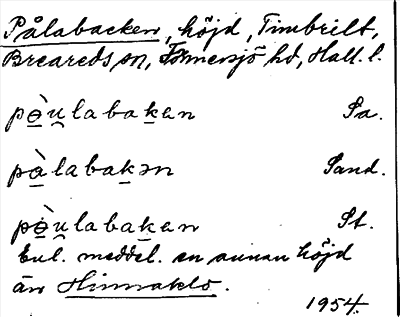 Pålabacken, höjd, Timbrilt,
Breareds sn, Tönnersjö hd, Hall. l.
pòu̯labaḵen Sa.
pàlabaḵən Sand.
pòu̯labaḵen St.
Enl. meddel. en annan höjd
än Hinnaklo.
1954.